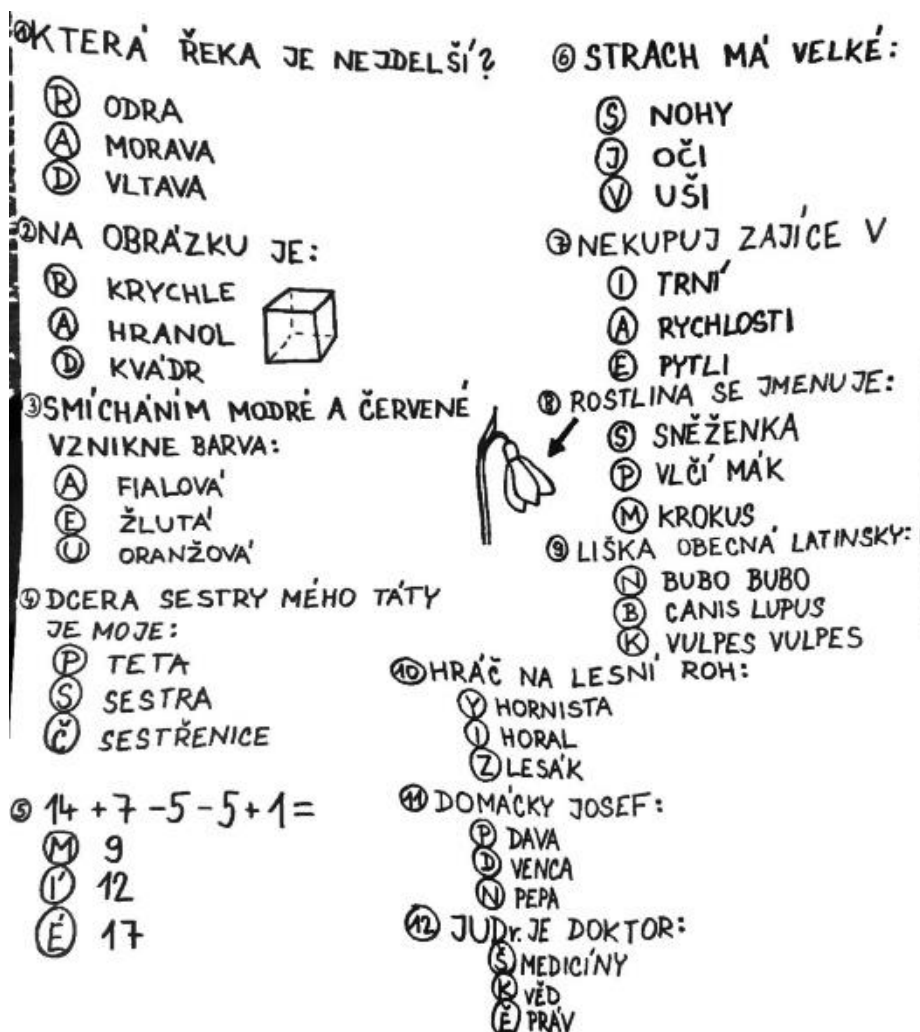 ① KTERÁ ŘEKA JE NEJDELŠÍ?
Ⓡ ODRA
Ⓐ MORAVA
Ⓓ VLTAVA
② NA OBRÁZKU JE:
Ⓡ KRYCHLE
Ⓐ HRANOL
Ⓓ KVÁDR
③ SMÍCHÁNÍM MODRÉ A ČERVENÉ
VZNIKNE BARVA:
Ⓐ FIALOVÁ
Ⓔ ŽLUTÁ
Ⓤ ORANŽOVÁ
④ DCERA SESTRY MÉHO TÁTY
JE MOJE:
Ⓟ TETA
Ⓢ SESTRA
Č SESTŘENICE
⑤ 14 + 7 - 5 - 5 + 1 =
Ⓜ 9
Í 12
É 17
⑥ STRACH MÁ VELKÉ:
Ⓢ NOHY
Ⓙ OČI
Ⓥ UŠI
⑦ NEKUPUJ ZAJÍCE V
Ⓘ TRNÍ
Ⓐ RYCHLOSTI
Ⓔ PYTLI
⑧ ROSTLINA SE JMENUJE:
Ⓢ SNĚŽENKA
Ⓟ VLČÍ MÁK
Ⓜ KROKUS
⑨ LIŠKA OBECNÁ LATINSKY:
Ⓝ BUBO BUBO
Ⓑ CANIS LUPUS
Ⓚ VULPES VULPES
⑩ HRÁČ NA LESNÍ ROH:
Ⓨ HORNISTA
Ⓘ HORAL
Ⓩ LESÁK
⑪ DOMÁCKY JOSEF:
Ⓟ DAVA
Ⓓ VENCA
Ⓝ PEPA
⑫ JUDr. JE DOKTOR:
Š MEDICÍNY
Ⓚ VĚD
Ě PRÁV